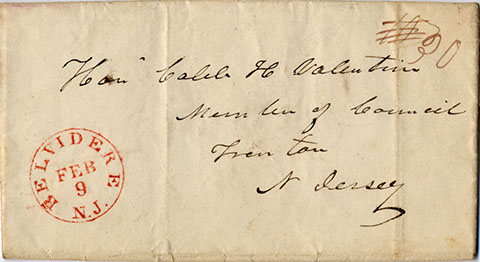 30
Hon Caleb H Valentine
Member of Council
Trenton
N Jersey
BELVIDERE
FEB
9
N.J.